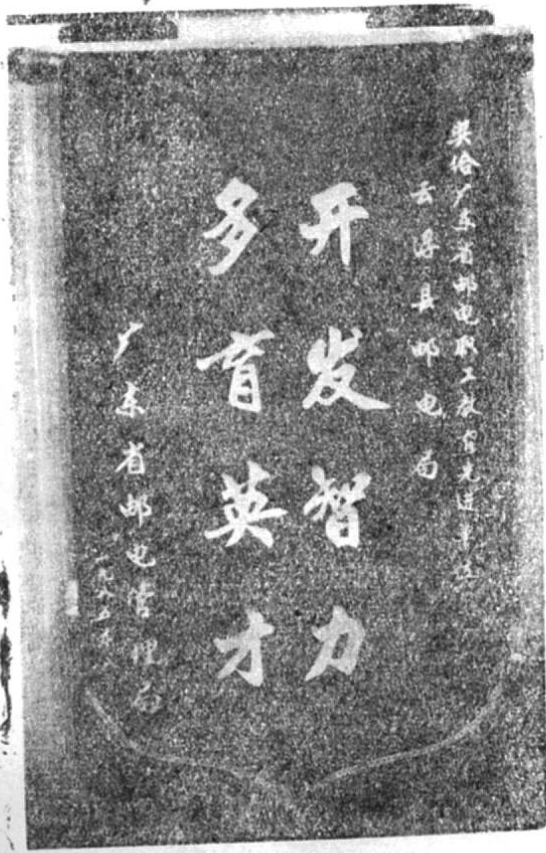 奖给广东省邮电职工教育先进单位
云浮县邮电局
开发智力
多育英才
广东省邮电管理局
一九八五年